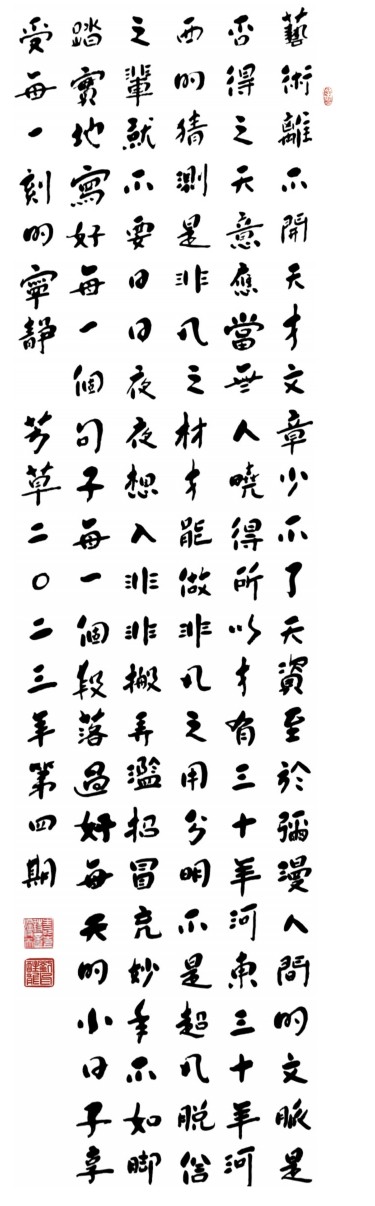 藝術離不開天才文章少不了天資至於彌漫人間的文脈是
否得之天意應當無人曉得所以才有三十年河東三十年河
西的猜測是非凡之材才能做非凡之用分明不是超凡脫俗
之輩就不要日日夜夜想入非非搬弄濫招冒充妙手不如腳
踏實地寫好每一個句子每一個段落過好每天的小日子享
受每一刻的寧靜 芳草二〇二三年第四期